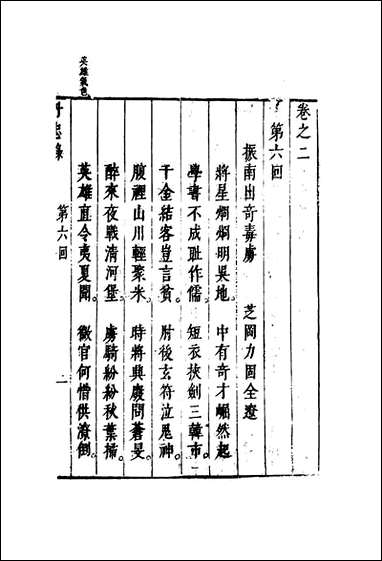 卷之二
第六回
振南出奇毒虜 芝岡力固全遼
將星烱烱明吳地。中有奇才崛然起
學書不成耻作儒。短衣挾劍三韓市。
千金結客豈言貧。肘後玄符泣鬼神
腹裡山川輕聚米。時將興廢問蒼旻
醉來夜戰清河堡。虜騎紛紛秋葉掃。
英雄直令夷夏聞。微官何惜供潦倒。
英雄氣色
丹忠錄
第六回
一